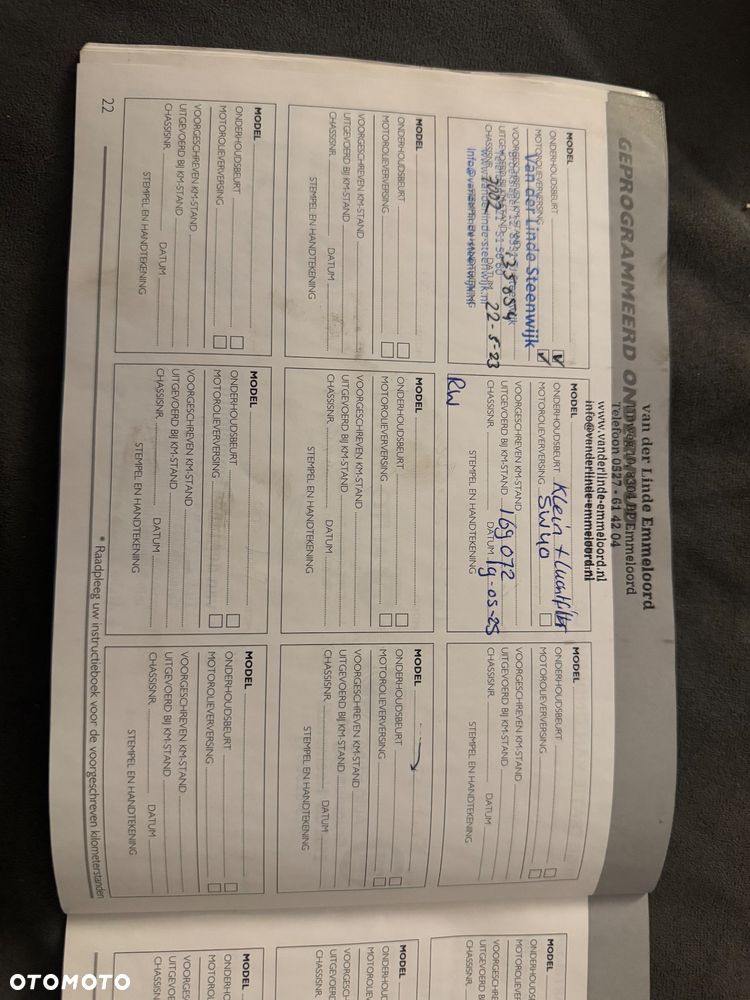 GEPROGRAMMEERD
van der Linde Emmeloord
Emmeloord
Telefoon 0527 - 61 42 04
www.vanderlinde-emmeloord.nl
info@vanderlinde-emmeloord.nl
MODEL
ONDERHOUDSBEURT
MOTOROLIEVERVERSING
VOORGESCHREVEN KM-STAND
UITGEVOERD BIJ KM-STAND
CHASSISNR. DATUM 22-5-23
STEMPEL EN HANDTEKENING
Van der Linde Steenwijk
www.vanderlinde-steenwijk.nl
MODEL
ONDERHOUDSBEURT Klein + Luchtfilter
MOTOROLIEVERVERSING 5W40
VOORGESCHREVEN KM-STAND
UITGEVOERD BIJ KM-STAND 169072
CHASSISNR. DATUM 19-05-25
STEMPEL EN HANDTEKENING
RW
MODEL
ONDERHOUDSBEURT
MOTOROLIEVERVERSING
VOORGESCHREVEN KM-STAND
UITGEVOERD BIJ KM-STAND
CHASSISNR. DATUM
STEMPEL EN HANDTEKENING
MODEL
ONDERHOUDSBEURT
MOTOROLIEVERVERSING
VOORGESCHREVEN KM-STAND
UITGEVOERD BIJ KM-STAND
CHASSISNR. DATUM
STEMPEL EN HANDTEKENING
MODEL
ONDERHOUDSBEURT
MOTOROLIEVERVERSING
VOORGESCHREVEN KM-STAND
UITGEVOERD BIJ KM-STAND
CHASSISNR. DATUM
STEMPEL EN HANDTEKENING
MODEL
ONDERHOUDSBEURT
MOTOROLIEVERVERSING
VOORGESCHREVEN KM-STAND
UITGEVOERD BIJ KM-STAND
CHASSISNR. DATUM
STEMPEL EN HANDTEKENING
MODEL
ONDERHOUDSBEURT
MOTOROLIEVERVERSING
VOORGESCHREVEN KM-STAND
UITGEVOERD BIJ KM-STAND
CHASSISNR. DATUM
STEMPEL EN HANDTEKENING
MODEL
ONDERHOUDSBEURT
MOTOROLIEVERVERSING
VOORGESCHREVEN KM-STAND
UITGEVOERD BIJ KM-STAND
CHASSISNR. DATUM
STEMPEL EN HANDTEKENING
MODEL
ONDERHOUDSBEURT
MOTOROLIEVERVERSING
VOORGESCHREVEN KM-STAND
UITGEVOERD BIJ KM-STAND
CHASSISNR. DATUM
STEMPEL EN HANDTEKENING
22
* Raadpleeg uw instructieboek voor de voorgeschreven kilometerstanden
MODEL
ONDERHOUDSBEU
MOTOROLIEVERV
VOORGESCHREVEN
UITGEVOERD BIJ K
CHASSISNR.
MODEL
ONDERHOUDSBE
MOTOROLIEVER
VOORGESCHREV
UITGEVOERD BIJ
CHASSISNR.
MODEL
ONDERHO
MOTOROL
VOORGESC
UITGEVOE
CHASSISNR
OTOMOTO